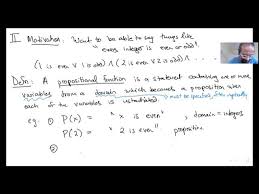 II Motivation. Want to be able to say things like
"every integer is even or odd".
(1 is even ∨ 1 is odd) ∧ (2 is even ∨ 2 is odd) ∧ ...
Defn: A propositional function is a statement containing one or more
variables from a domain which becomes a proposition when
each of the variables is instantiated
must be specified
eg: ① P(x) = "x is even" domain = integers
P(2) = "2 is even" proposition
②